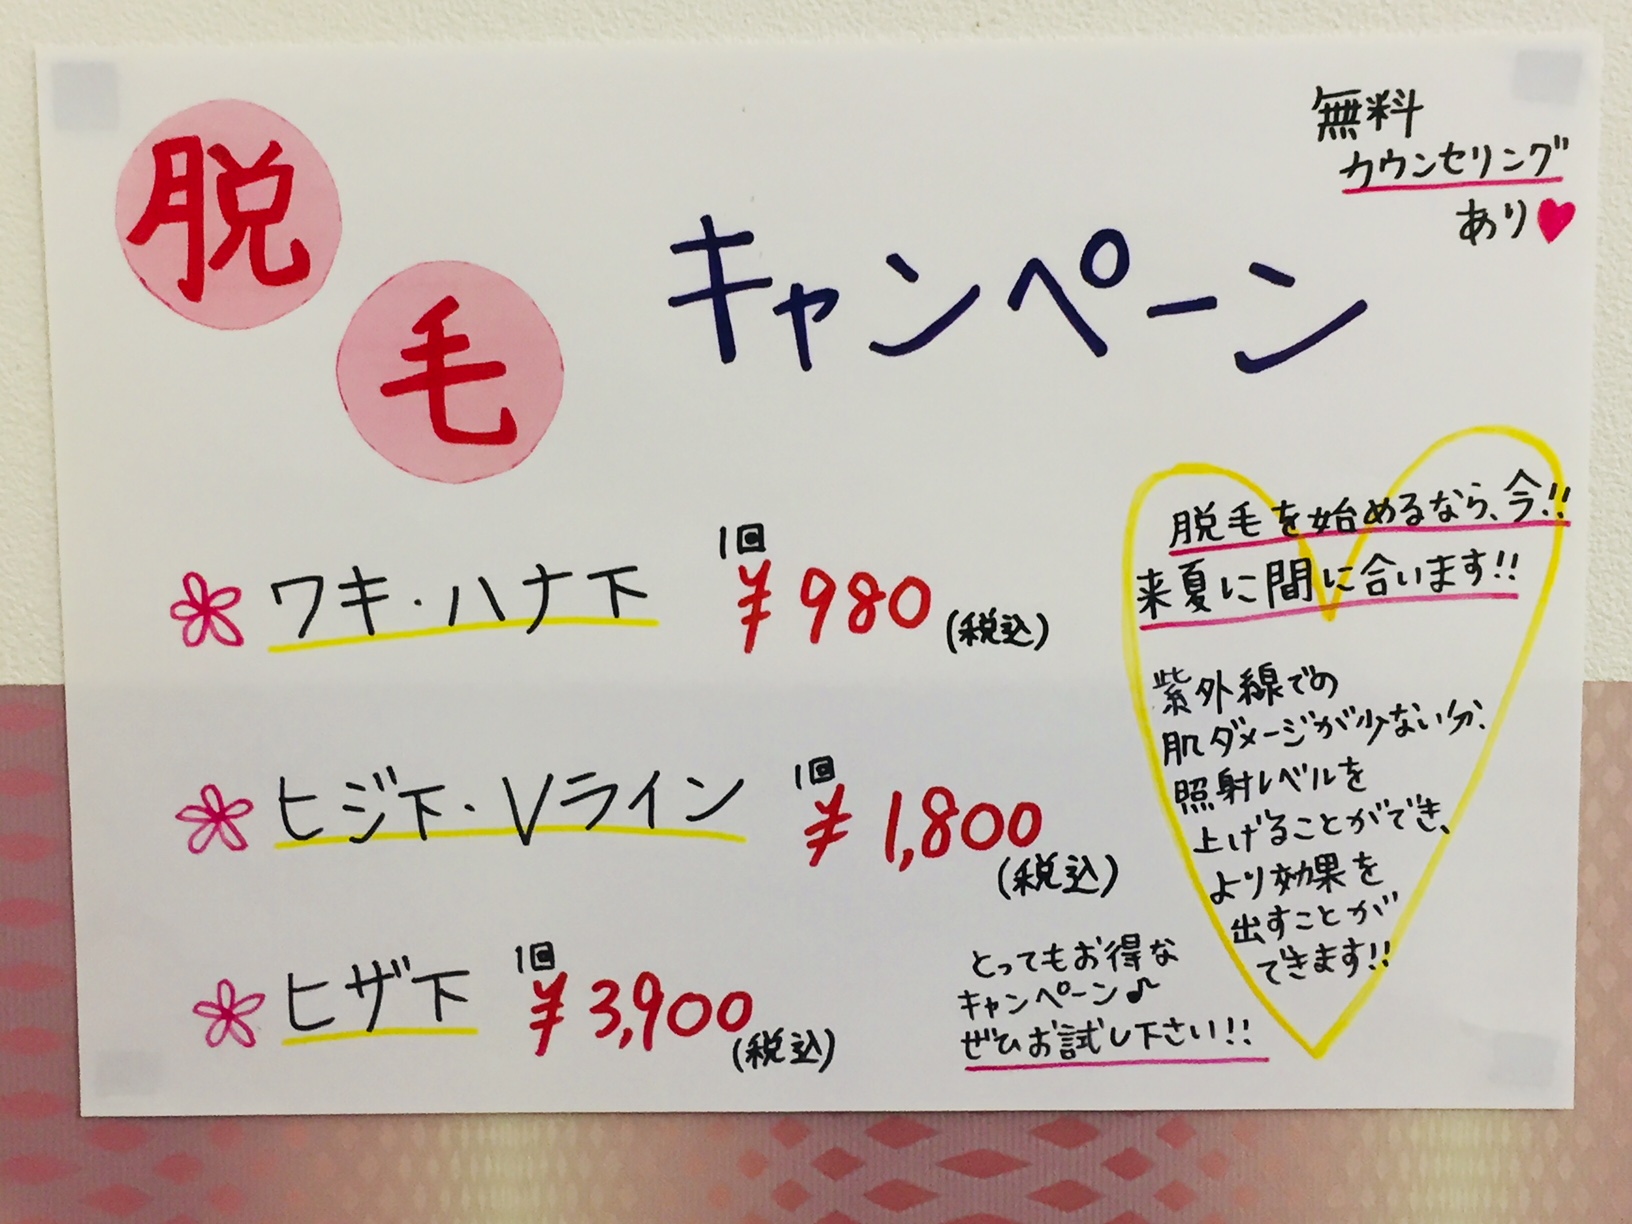 脱毛
キャンペーン
無料
カウンセリング
あり
ワキ・ハナ下 1回 ¥980 (税込)
ヒジ下・Vライン 1回 ¥1,800 (税込)
ヒザ下 1回 ¥3,900 (税込)
脱毛を始めるなら、今!!
来夏に間に合います!!
紫外線での
肌ダメージが少ない分、
照射レベルを
上げることができ、
より効果を
出すことが
できます!!
とってもお得な
キャンペーン♪
ぜひお試し下さい!!